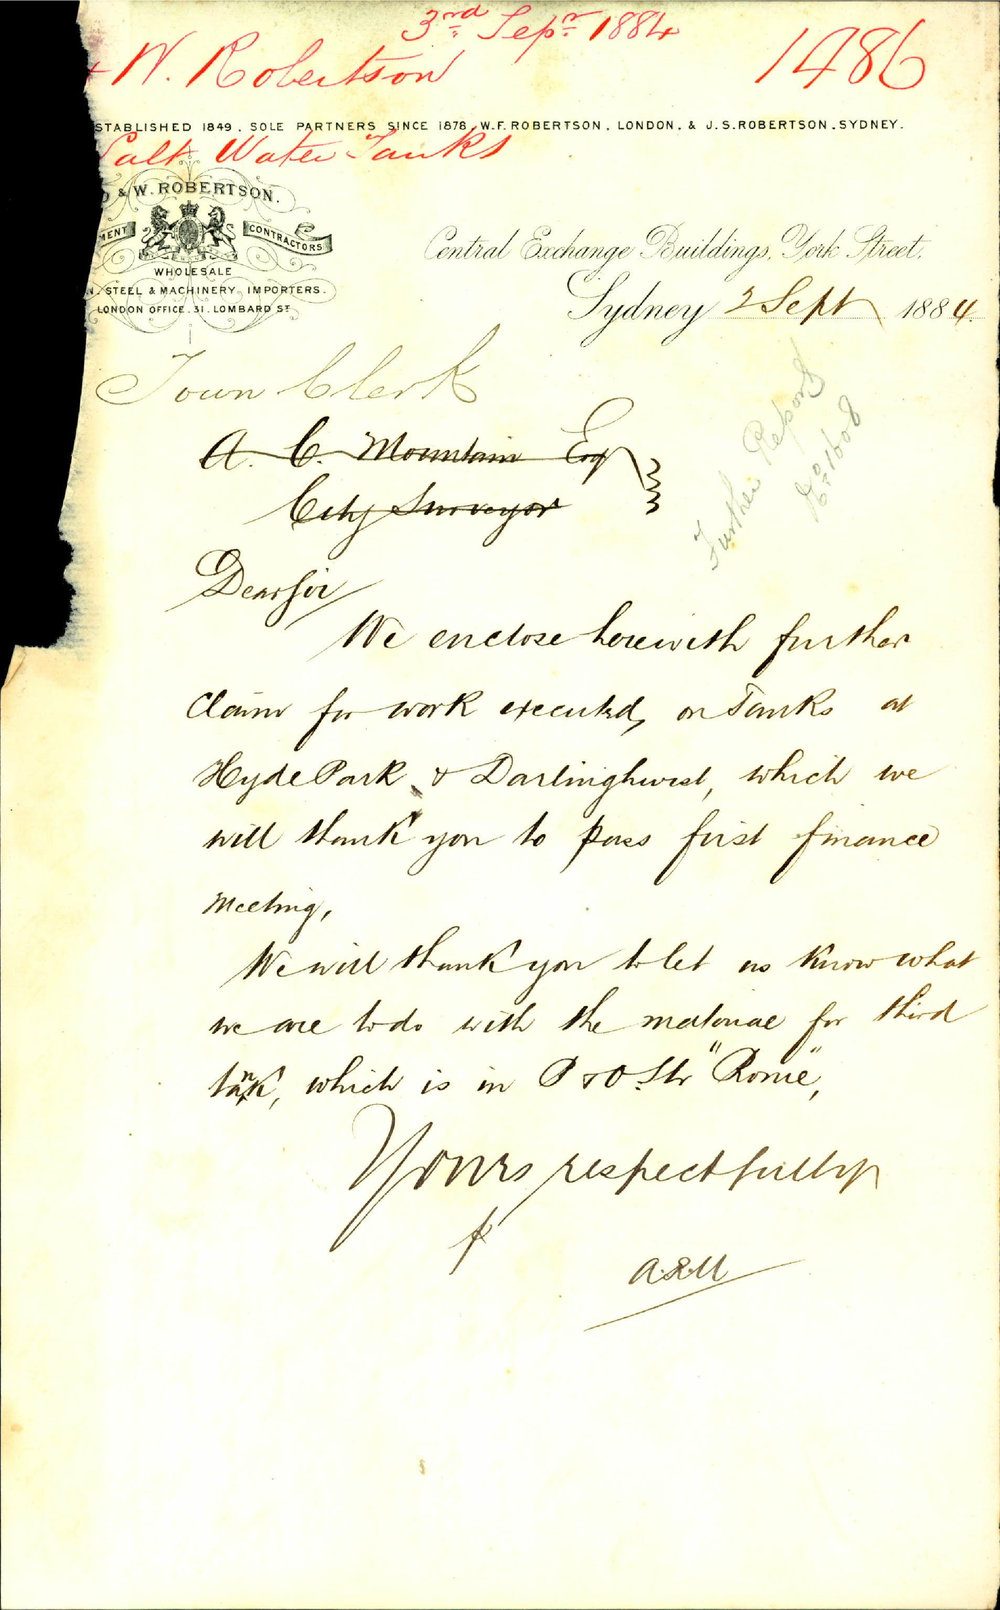 3rd Sepr 1884
+ W. Robertson
1486
STABLISHED 1849. SOLE PARTNERS SINCE 1878, W.F. ROBERTSON, LONDON, & J.S. ROBERTSON, SYDNEY.
Salt Water Tanks
& W. ROBERTSON.
MENT CONTRACTORS
WHOLESALE
N, STEEL & MACHINERY IMPORTERS.
LONDON OFFICE. 31. LOMBARD ST
Central Exchange Buildings, York Street.
Sydney 2 Sept 1884
Town Clerk
A. C. Mountain Esq
City Surveyor
Further Report
No 1608
Dear Sir
We enclose herewith further
claim for work executed, on Tanks at
Hyde Park & Darlinghurst, which we
will thank you to pass first finance
meeting,
We will thank you to let us know what
we are to do with the material for third
tank, which is in P & O. Str "Rome",
Yours respectfully
p